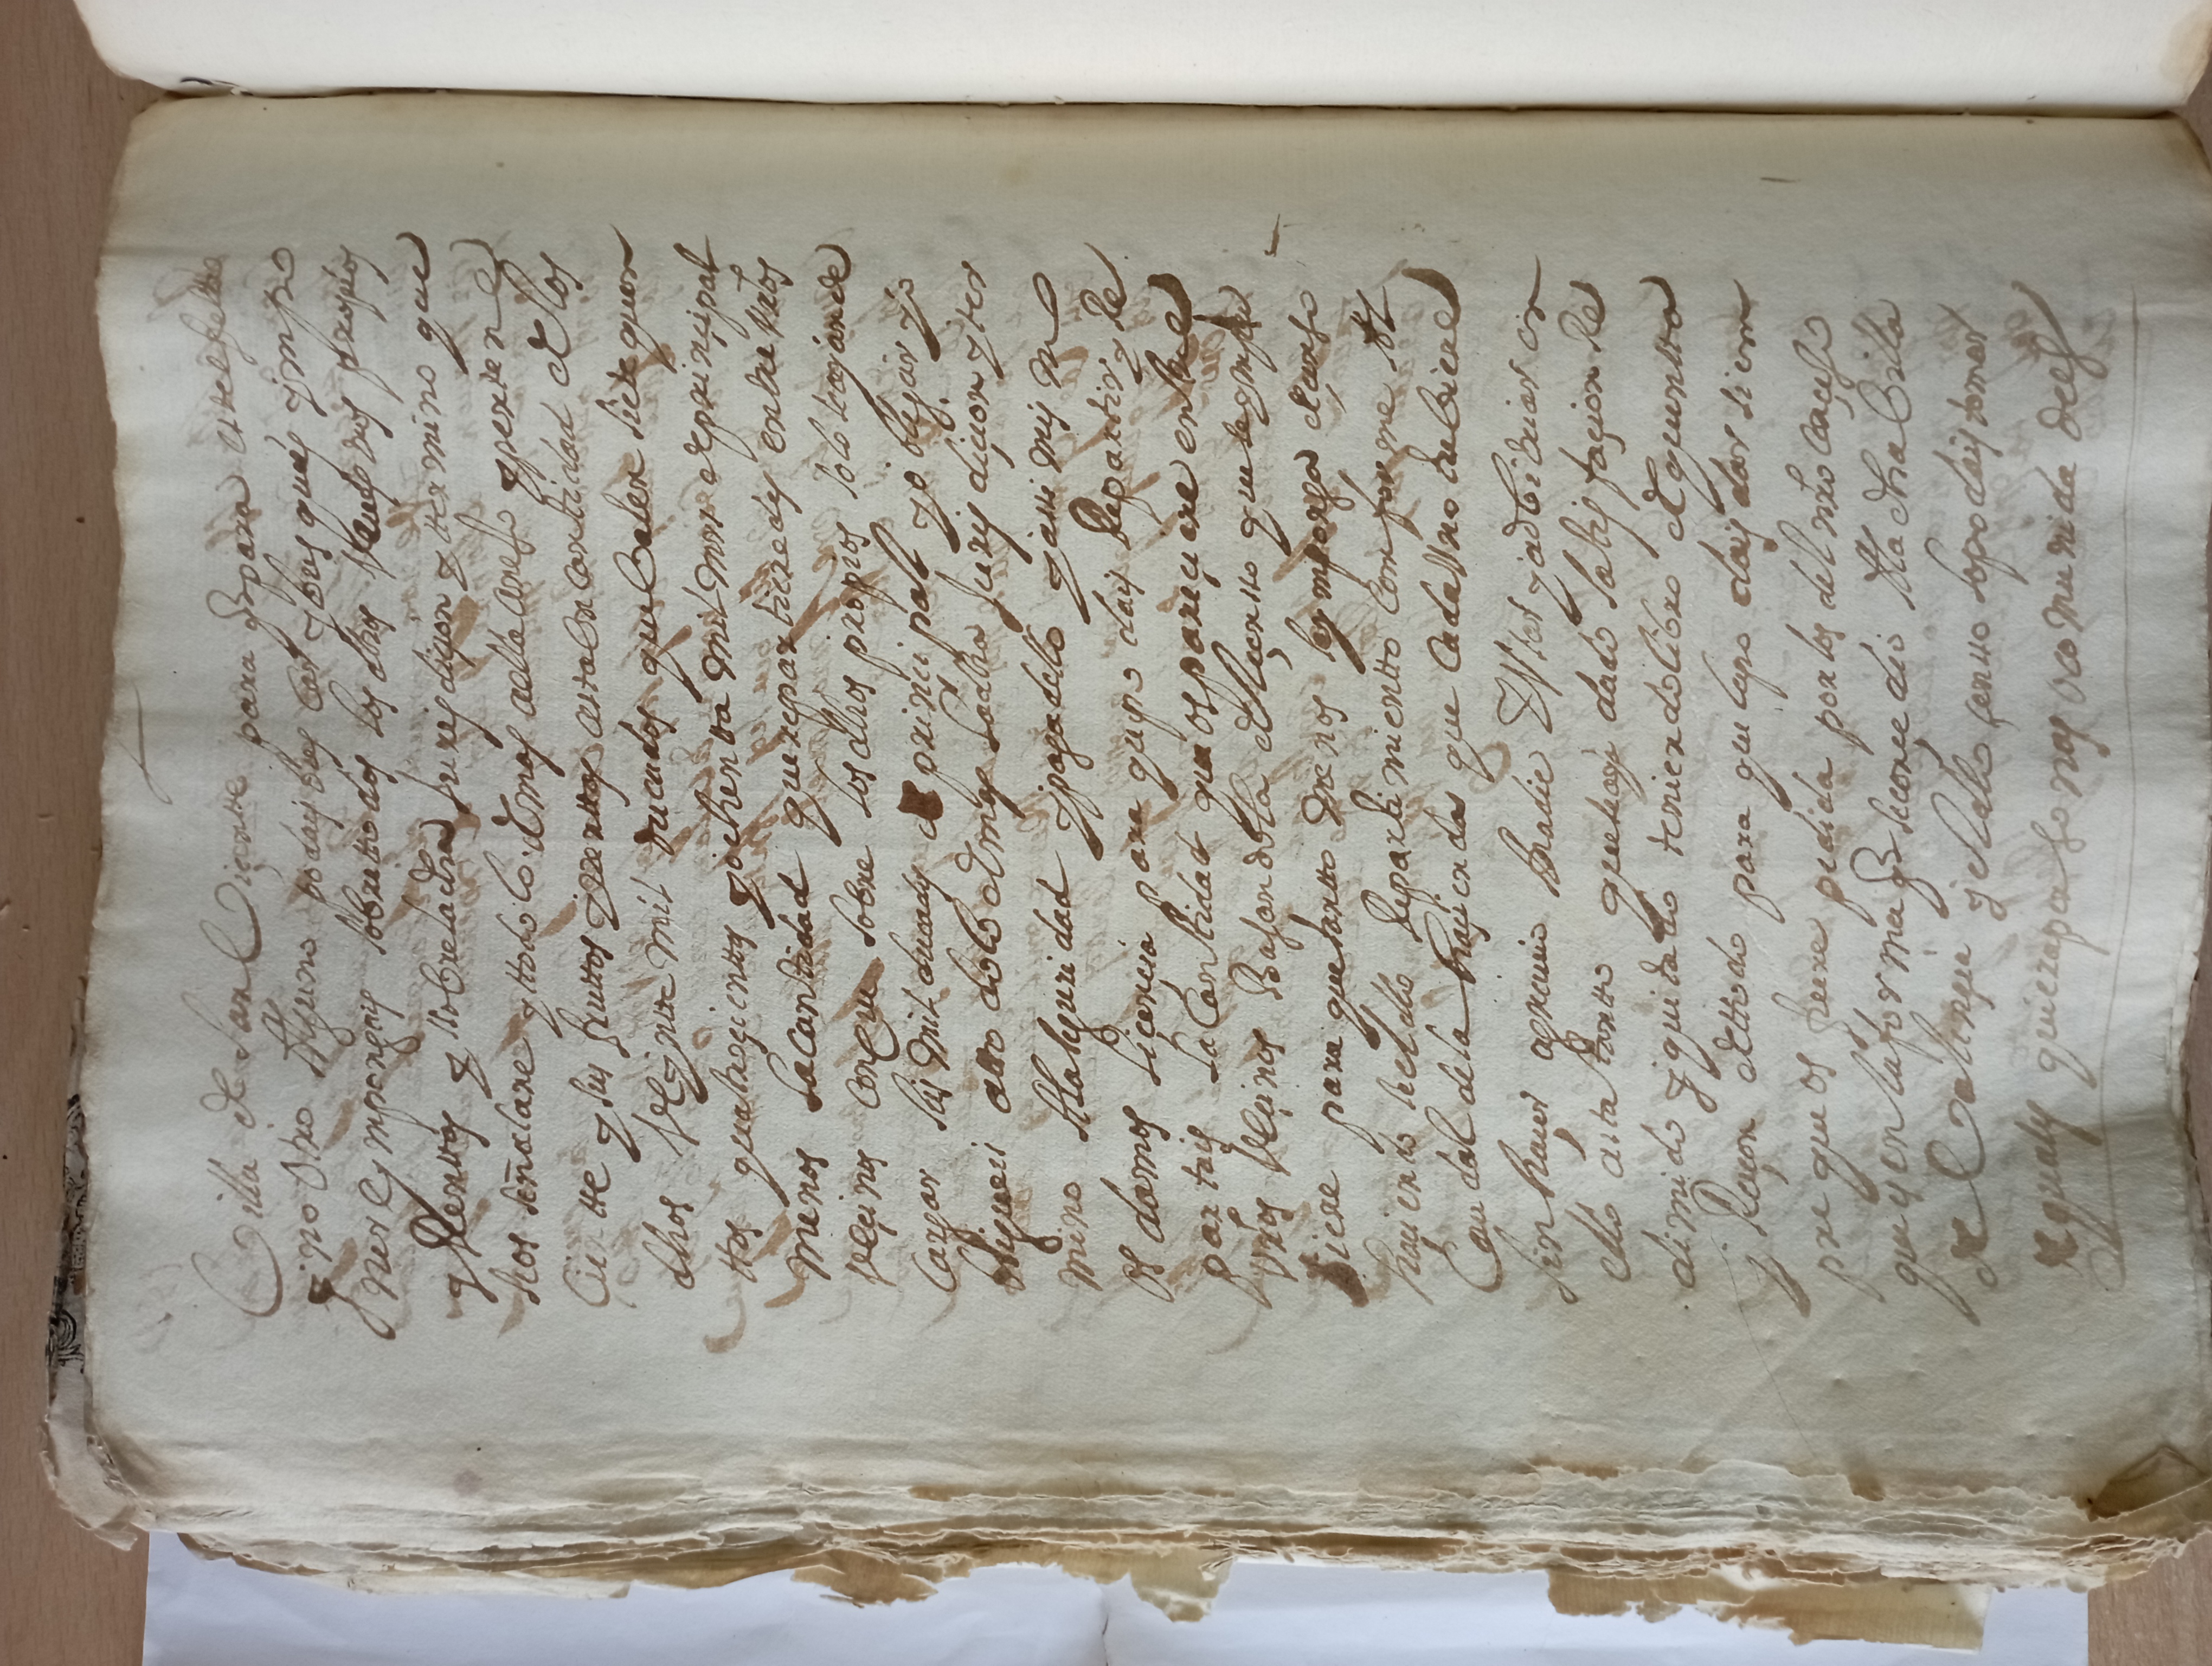 Villa de San Viçentte para q para este efetto
y no Otro Alguno podais bus Car y bus queis ympo
ner e ympongais sobre tto dos los dhos Vuestros propios
y Renttas y ssobre la dha Jurisdiçion y ttermino que
seos señalare y ttodo lo demas aella anejo y pertene
Çientte y sus fruttos y rrenttas asta En cantidad de los
dhos Veyntte mil ducados que Valen siete quen
ttos quatroçienttos y ochentta mil mrs de prinçipal
menos la cantidad que repartieredes entre Vros
Veçinos con que sobre los dhos propios solo seayan de
Cargar seis mil ducados de principal y obligar yo
bligueis atto do lo demas la dha Jurisdiçion y ter
mino Ala seguridad y paga dello y assi mis mo
Os damos liçençia para que po dais Repartir y Re
partais la Cantidad que os pareçiere entre
Vros Veçinos Bajandola del çentto que se ympu
siere para que tantto menos se ymponga de çenso
haçiendo se el dho Repartimientto Comforme Al
Caudal de la haçiendas que Cada Uno tubiere
sin haçer agrauio Anadie Y Usar y adbitriar en
ello asta tantto que seaya dado satisfaçion Re
dimido y quitado teniendo libro de quentta
y Raçon de ttodo para que la po dais dar siem
pre que os fuere pedida por los del nro conçejo
que es en la forma q se conçe dio Ala dha Villa
de Valençia y el dho çensso lo po dais tomar
de quales quiera per sonas o comunida des